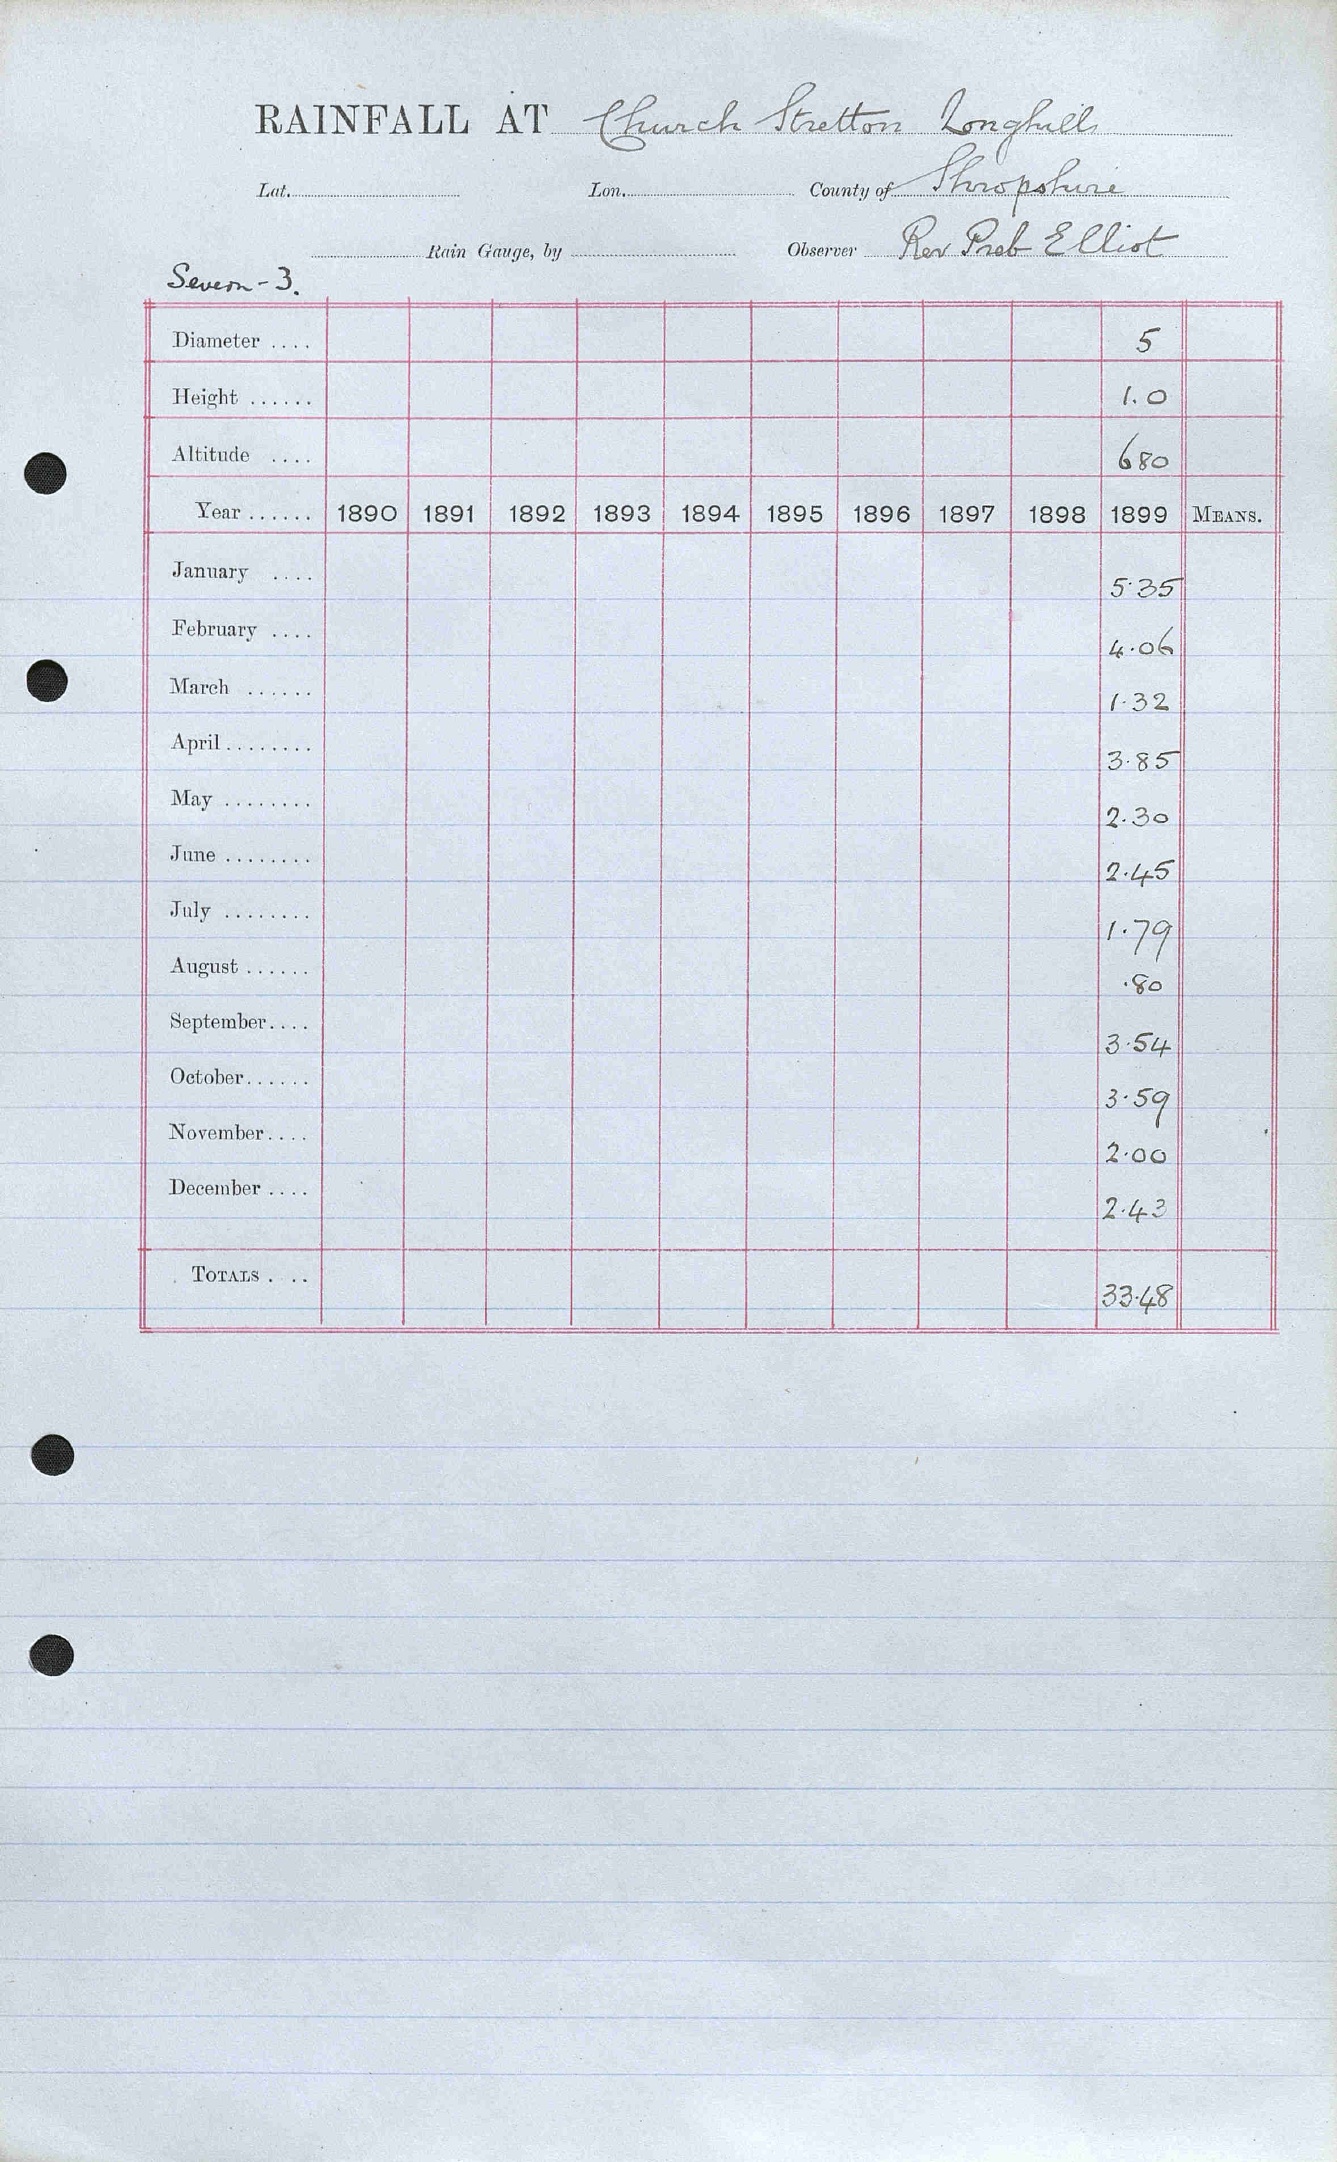 RAINFALL AT Church Stretton Longhills
Lat. Lon. County of Shropshire
Rain Gauge, by Observer Rev Preb Elliot
Severn - 3.
Diameter .... 5
Height ...... 1.0
Altitude .... 680
Year ...... 1890 1891 1892 1893 1894 1895 1896 1897 1898 1899 MEANS.
January .... 5.35
February .... 4.06
March ...... 1.32
April ........ 3.85
May ........ 2.30
June ........ 2.45
July ........ 1.79
August ...... .80
September.... 3.54
October...... 3.59
November.... 2.00
December .... 2.43
TOTALS . .. 33.48